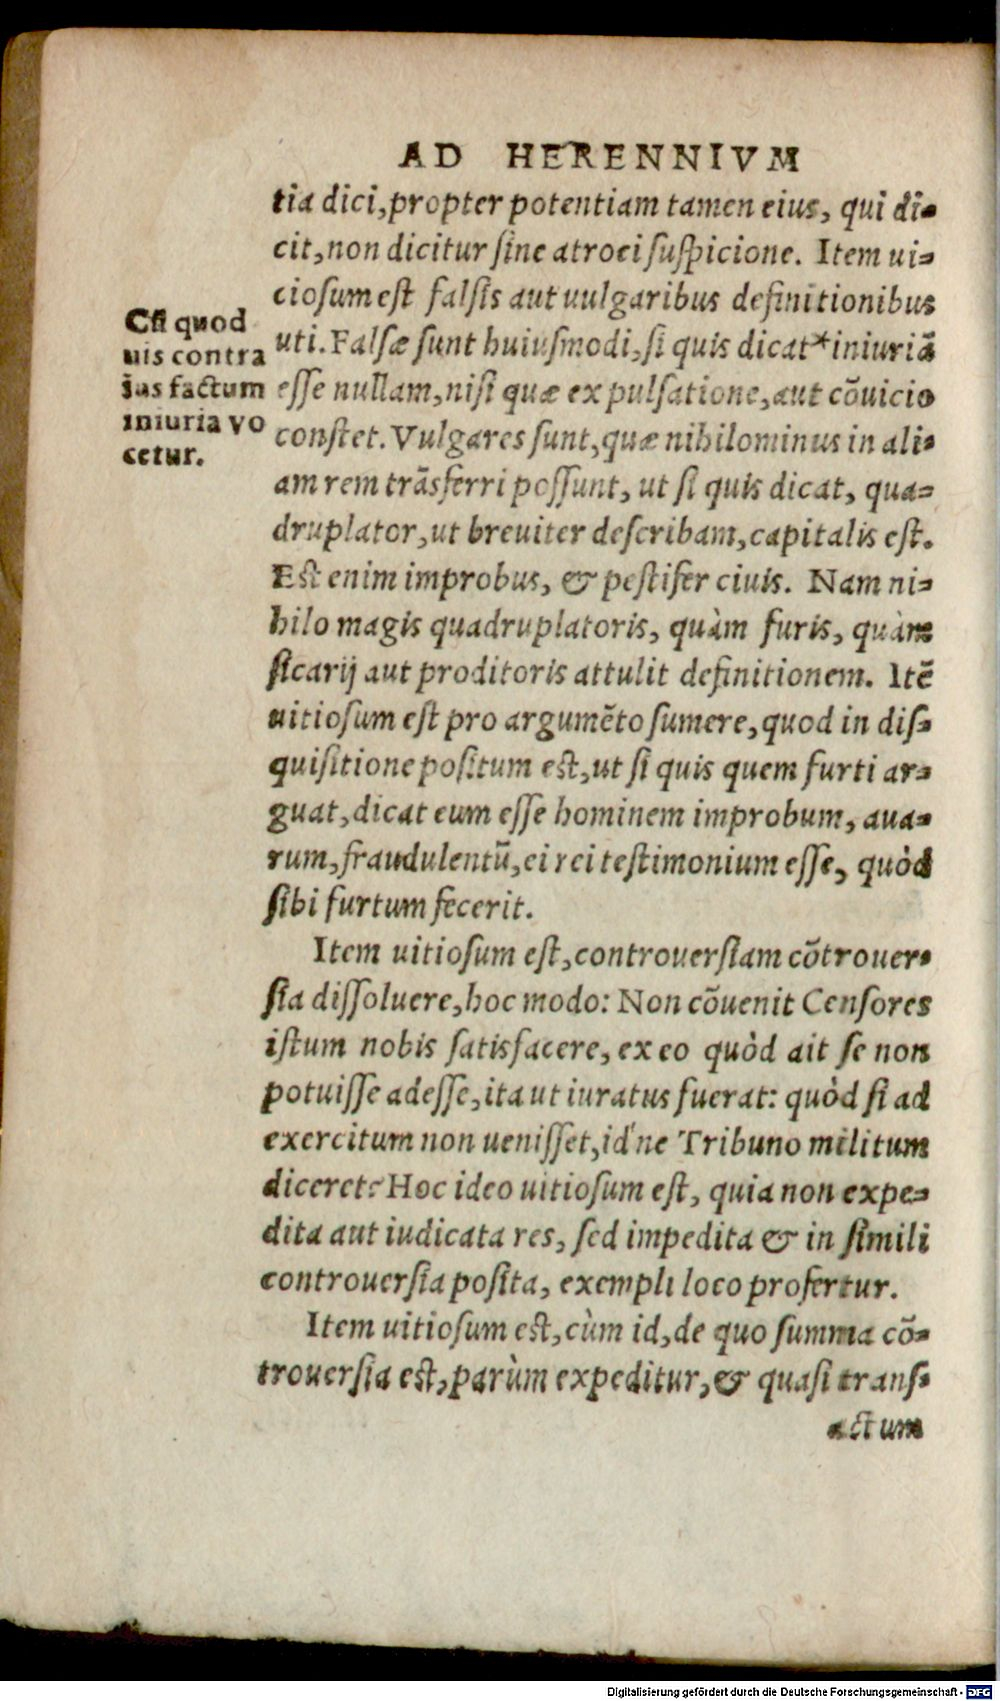 AD HERENNIVM
tia dici, propter potentiam tamen eius, qui di-
cit, non dicitur sine atroci suspicione. Item ui-
ciosum est falsis aut uulgaribus definitionibus
uti. Falsæ sunt huiusmodi, si quis dicat * iniuriã
esse nullam, nisi quæ ex pulsatione, aut cõuicio
constet. Vulgares sunt, quæ nihilominus in ali-
am rem trãsferri possunt, ut si quis dicat, qua-
druplator, ut breuiter describam, capitalis est.
Est enim improbus, & pestifer ciuis. Nam ni-
hilo magis quadruplatoris, quàm furis, quàm
sicarij aut proditoris attulit definitionem. Itẽ
uitiosum est pro argumẽto sumere, quod in dis-
quisitione positum est, ut si quis quem furti ar-
guat, dicat eum esse hominem improbum, aua-
rum, fraudulentũ, ei rei testimonium esse, quòd
sibi furtum fecerit.
Item uitiosum est, controuersiam cõtrouer-
sia dissoluere, hoc modo: Non cõuenit Censores
istum nobis satisfacere, ex eo quòd ait se non
potuisse adesse, ita ut iuratus fuerat: quòd si ad
exercitum non uenisset, id'ne Tribuno militum
diceret? Hoc ideo uitiosum est, quia non expe-
dita aut iudicata res, sed impedita & in simili
controuersia posita, exempli loco profertur.
Item uitiosum est, cùm id, de quo summa cõ-
trouersia est, parùm expeditur, & quasi trans-
actum
quod
uis contra
ius factum
iniuria vo
cetur.
Digitalisierung gefördert durch die Deutsche Forschungsgemeinschaft - DFG